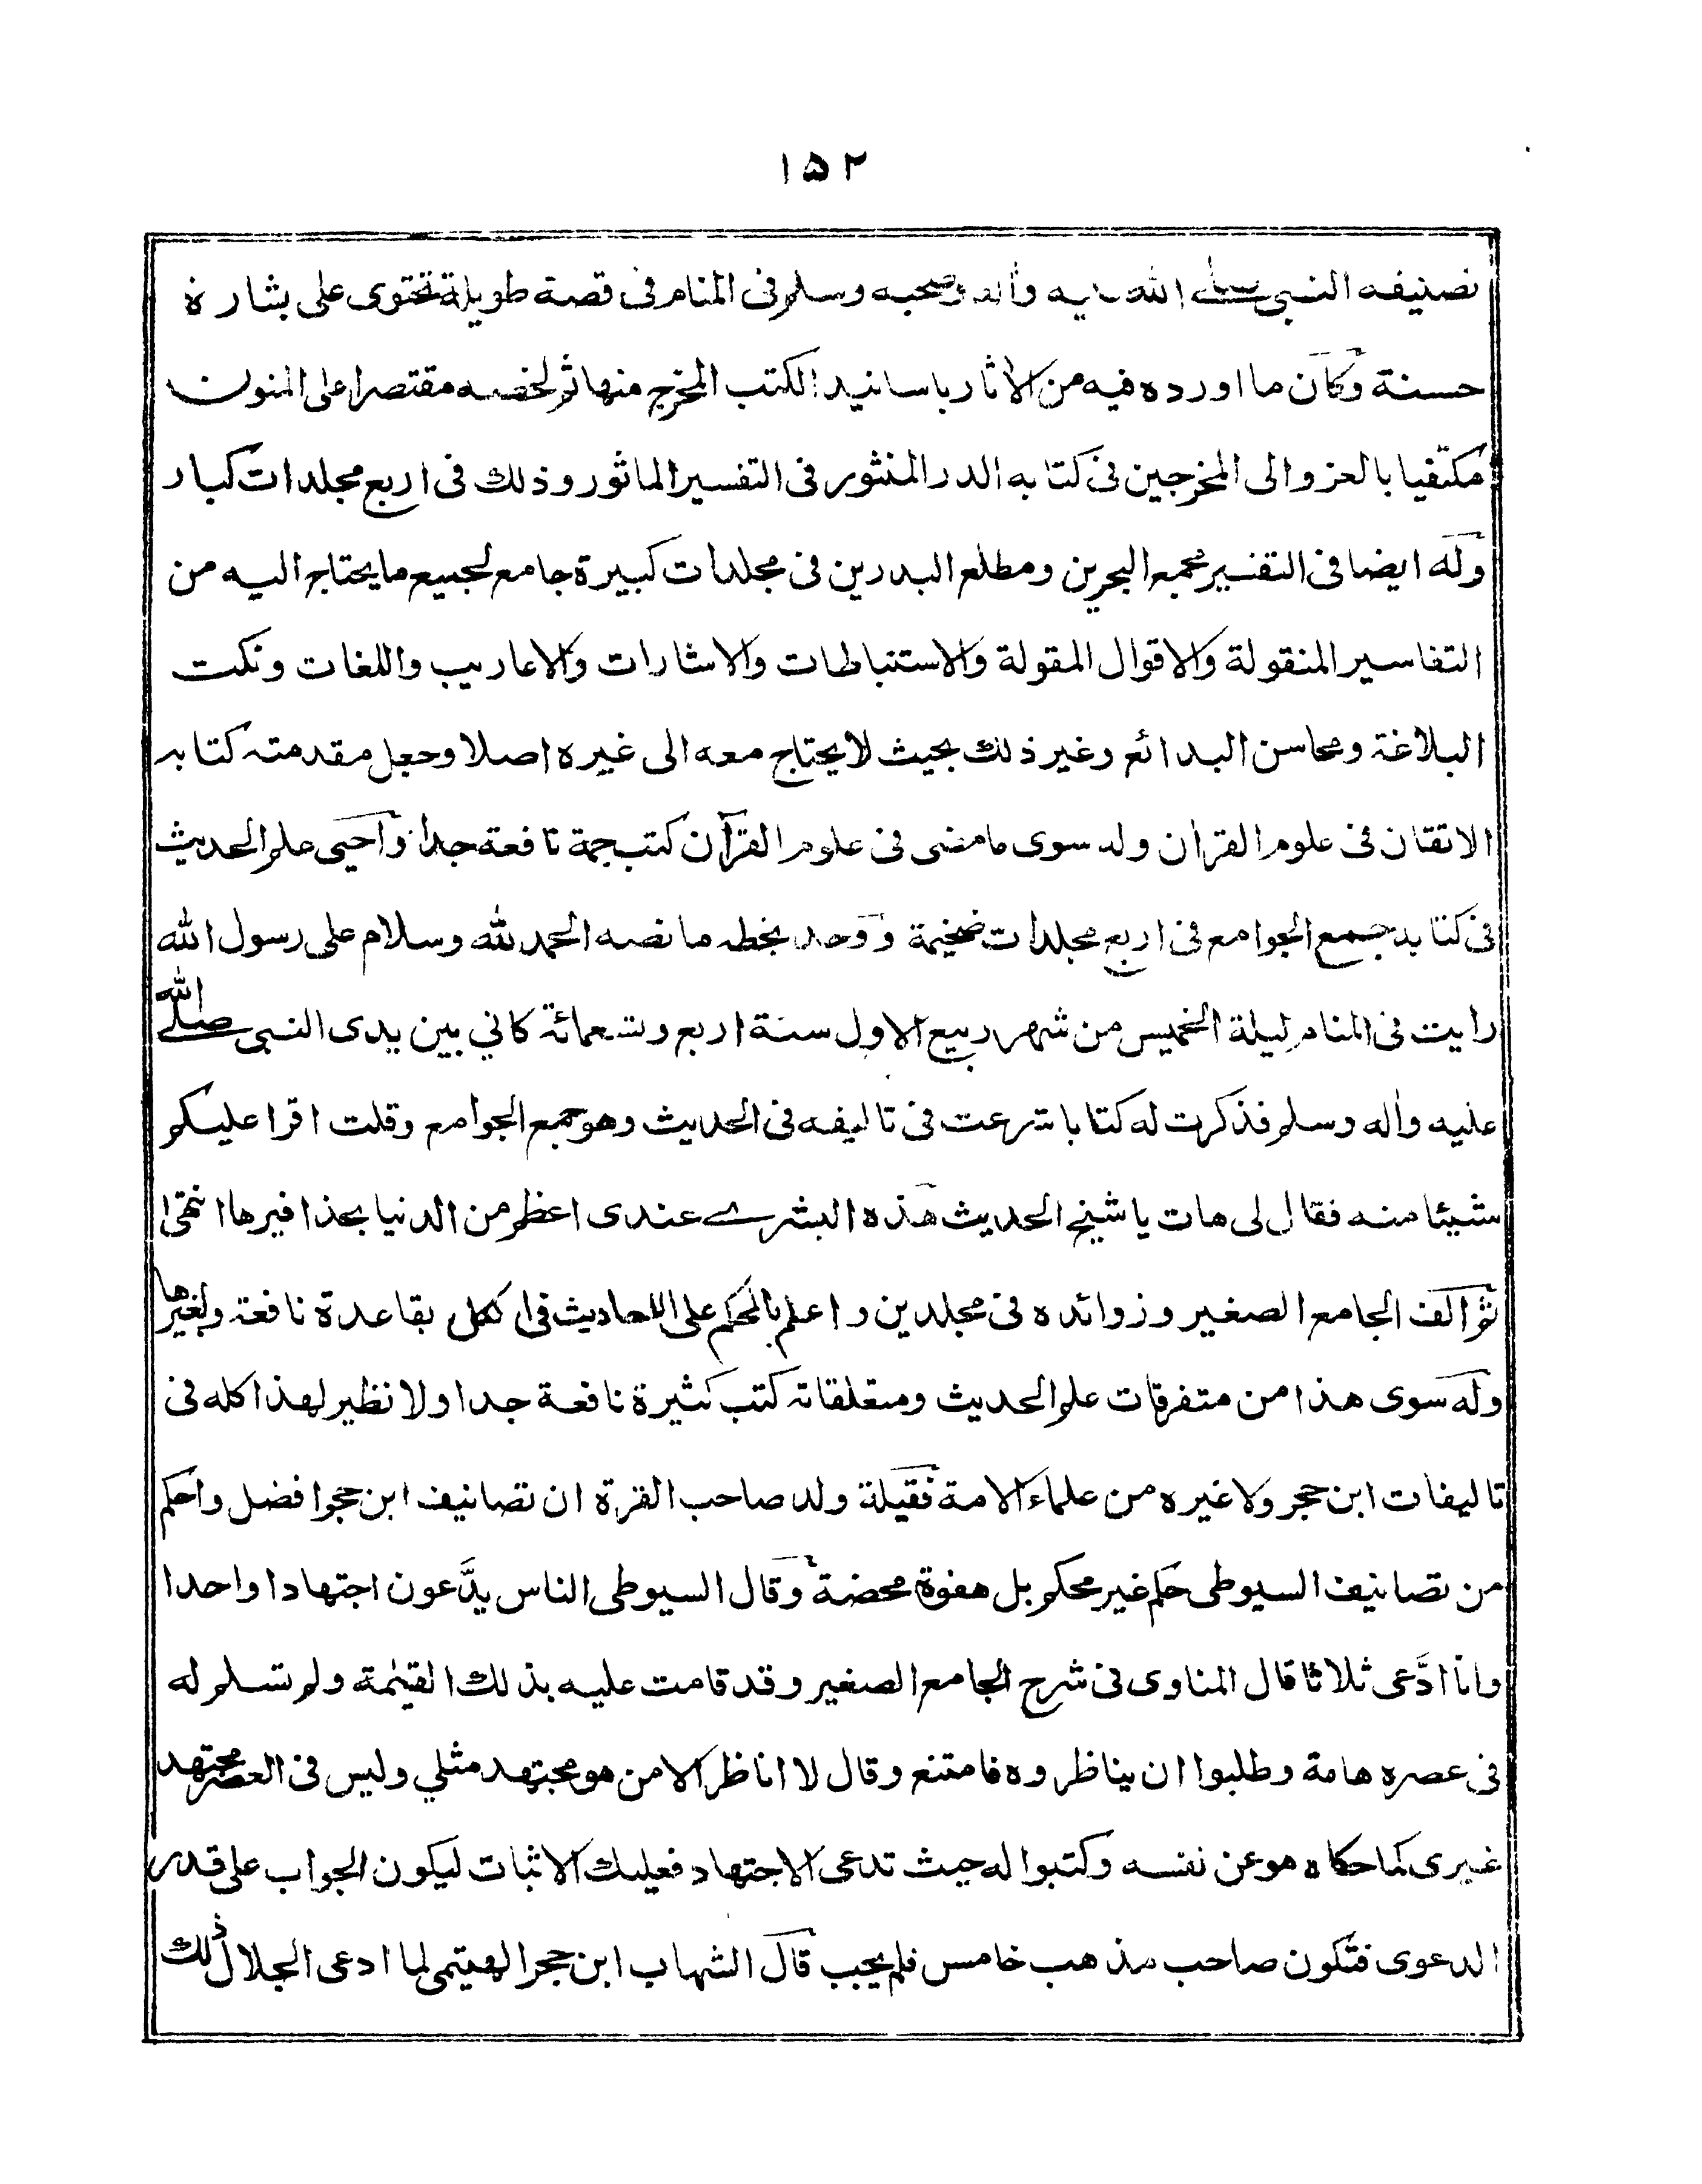 ۱۵۲
تصنيفه النبى صلى الله عليه وآله وصحبه وسلم فى المنام فى قصة طويلة تحتوى على بشارة
حسنة وكان ما اورده فيه من الاثار باسانيد الكتب المخرج منها ثم لخصه مقتصرا على المتون
مكتفيا بالعزو الى المخرجين فى كتابه الدر المنثور فى التفسير الماثور وذلك فى اربع مجلدات كبار
وله ايضا فى التفسير مجمع البحرين ومطلع البدرين فى مجلدات كبيرة جامع لجميع ما يحتاج اليه من
التفاسير المنقولة والاقوال المقولة والاستنباطات والاشارات والاعاريب واللغات ونكت
البلاغة ومحاسن البدائع وغير ذلك بحيث لا يحتاج معه الى غيره اصلا وجعل مقدمته كتابه
الاتقان فى علوم القرآن وله سوى ما مضى فى علوم القرآن كتب جمة نافعة جدا واحيى علم الحديث
فى كتابه جمع الجوامع فى اربع مجلدات ضخيمة ووجد بخطه ما نصه الحمد لله وسلام على رسول الله
رايت فى المنام ليلة الخميس من شهر ربيع الاول سنة اربع وتسعمائة كاني بين يدى النبى صلى الله
عليه وآله وسلم فذكرت له كتابا شرعت فى تاليفه فى الحديث وهو جمع الجوامع وقلت اقرا عليكم
شيئا منه فقال لى هات يا شيخ الحديث هذه البشرے عندى اعظم من الدنيا بحذافيرها انتهى
ثم الف الجامع الصغير وزوائده فى مجلدين واعلم بالحكم على الاحاديث فى الكل بقاعدة نافعة ولغيرها
وله سوى هذا من متفرقات علم الحديث ومتعلقاته كتب كثيرة نافعة جدا ولا نظير لهذا كله فى
تاليفات ابن حجر ولا غيره من علماء الامة فقيلة ولد صاحب القرة ان تصانيف ابن حجر افضل واحكم
من تصانيف السيوطى حكم غير محكم بل هفوة محضة وقال السيوطى الناس يدَّعون اجتهادا واحدا
وانا ادَّعى ثلاثا قال المناوى فى شرح الجامع الصغير وقد قامت عليه بذلك القيٰمة ولم تسلم له
فى عصره هامة وطلبوا ان يناظروه فامتنع وقال لا اناظر الا من هو مجتهد مثلي وليس فى العصر مجتهد
غيرى كما حكاه هو عن نفسه وكتبوا له حيث تدعى الاجتهاد فعليك الاثبات ليكون الجواب على قدر
الدعوى فتكون صاحب مذهب خامس فلم يجب قال الشهاب ابن حجر الهيتمى لما ادعى الجلال ذلك